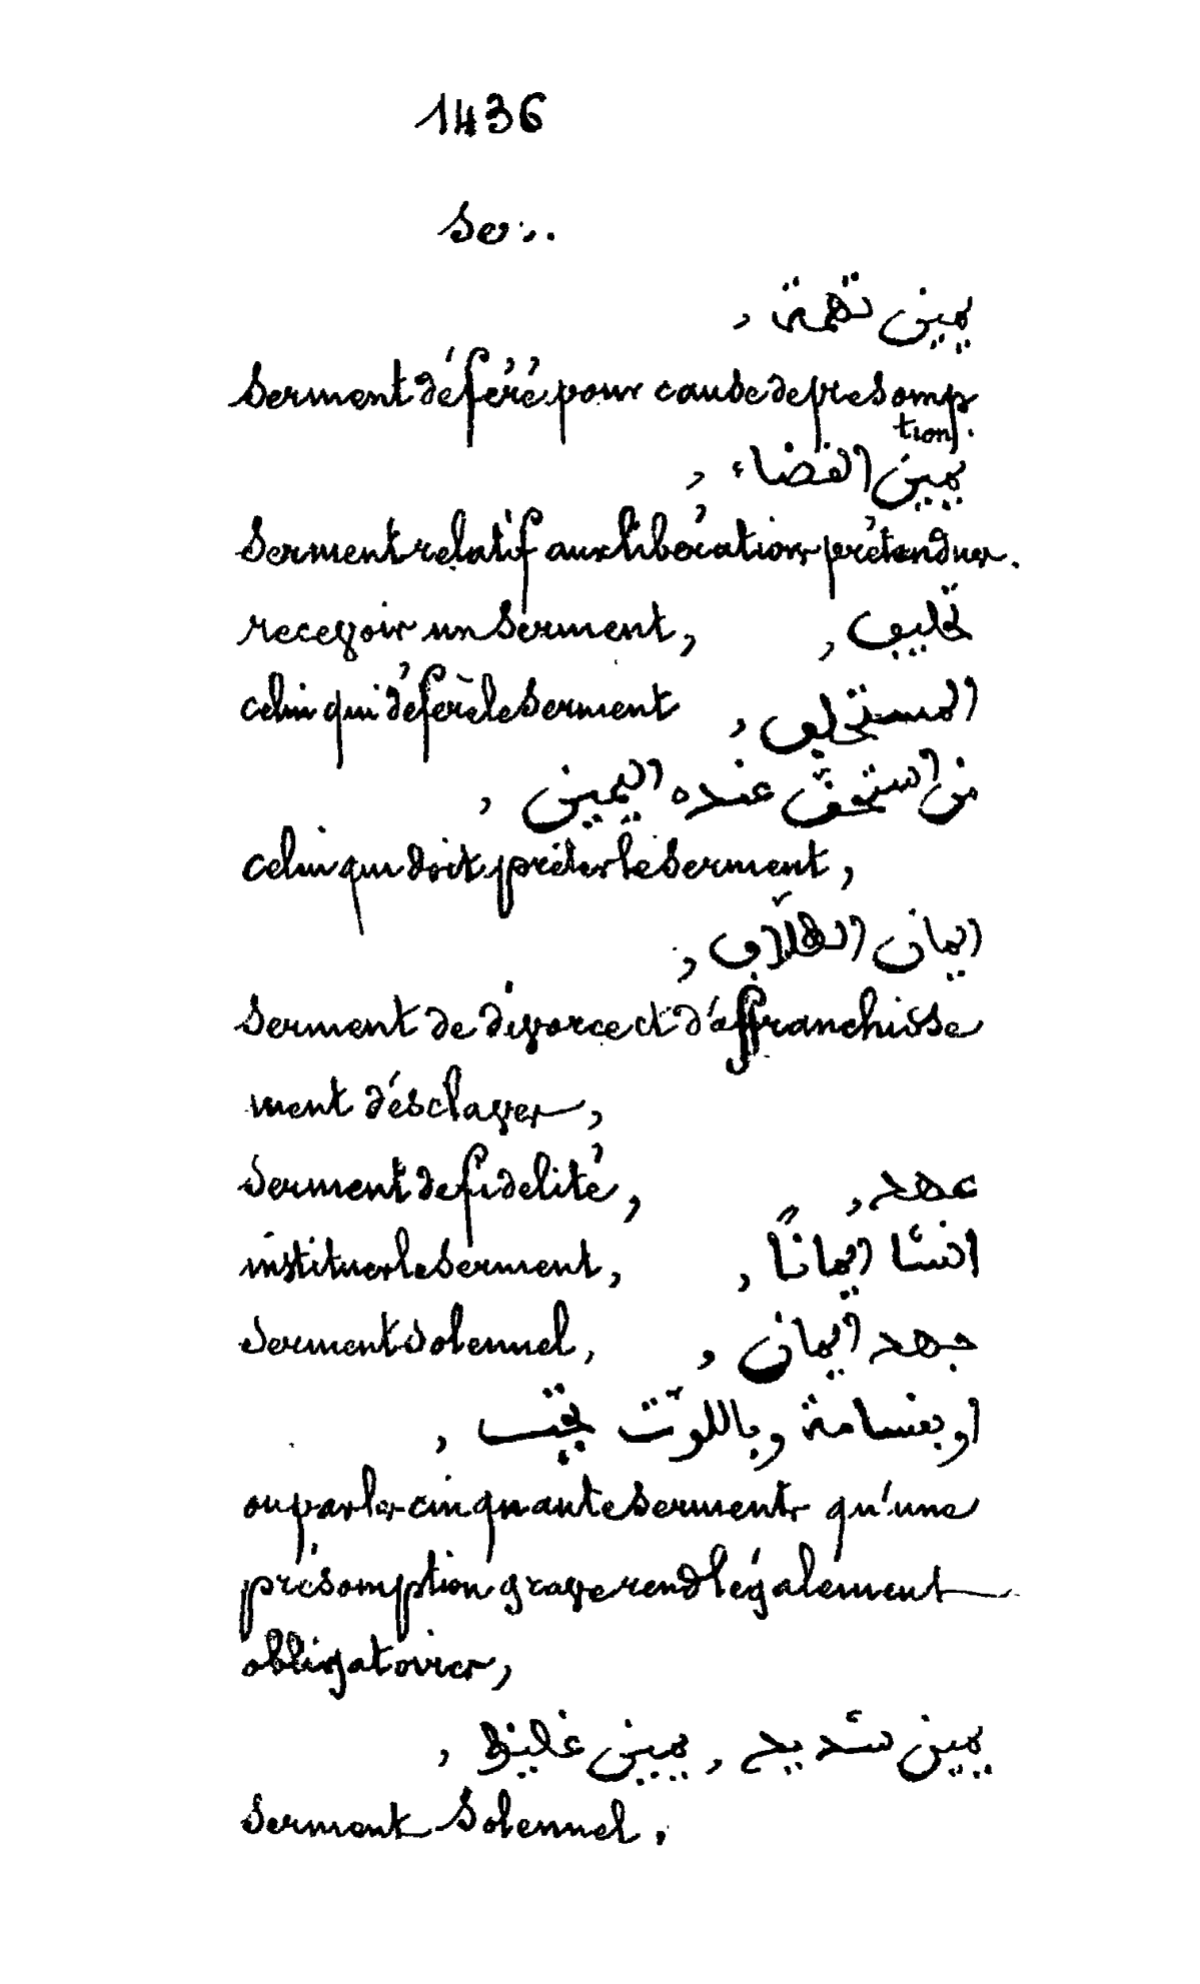 1436
Se...
يمين تهمة ,
Serment déféré pour cause de presomp
tion.
يمين القضاء ,
Serment relatif aux libérations prétendues.
recevoir un Serment, تحليف ,
celui qui défère le Serment المستحلف ,
من استحق عنده اليمين ,
celui qui doit prêter le Serment,
ايمان الطلاق ,
Serment de divorce et d'affranchisse
ment d'ésclaves,
Serment de fidelité, عهد ,
instituer le Serment, انشا ايمانًا ,
Serment Solennel, جهد ايمان ,
او بقسامة وباللوث يجب ,
ou par les cinquante Serments qu'une
présomption grave rend légalement
obligatoires,
يمين شديد , يمين غليظ ,
Serment Solennel.